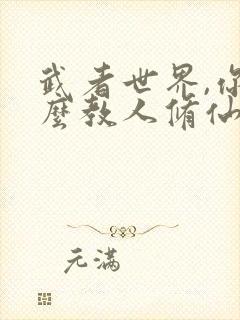 武者世界,你
麼教人脩仙
元滿